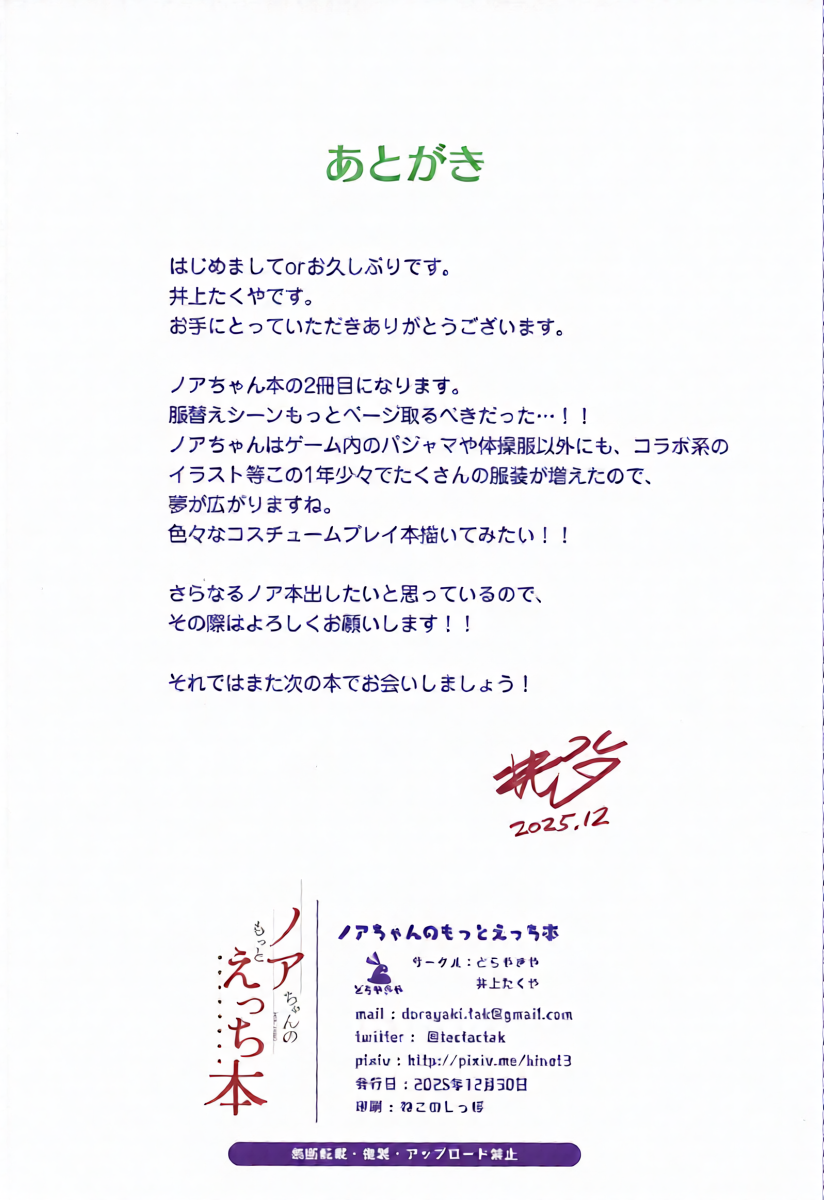 あとがき
はじめましてorお久しぶりです。
井上たくやです。
お手にとっていただきありがとうございます。
ノアちゃん本の2冊目になります。
服替えシーンもっとページ取るべきだった…！！
ノアちゃんはゲーム内のパジャマや体操服以外にも、コラボ系の
イラスト等この1年少々でたくさんの服装が増えたので、
夢が広がりますね。
色々なコスチュームプレイ本描いてみたい！！
さらなるノア本出したいと思っているので、
その際はよろしくお願いします！！
それではまた次の本でお会いしましょう！
2025.12
ノアちゃんの
もっと
えっち本
ノアちゃんのもっとえっち本
サークル：どらやきや
井上たくや
どらやきや
mail : dorayaki.tak@gmail.com
twitter : @tactactak
pixiv : http://pixiv.me/hinot3
発行日 : 2025年12月30日
印刷 : ねこのしっぽ
無断転載・複製・アップロード禁止